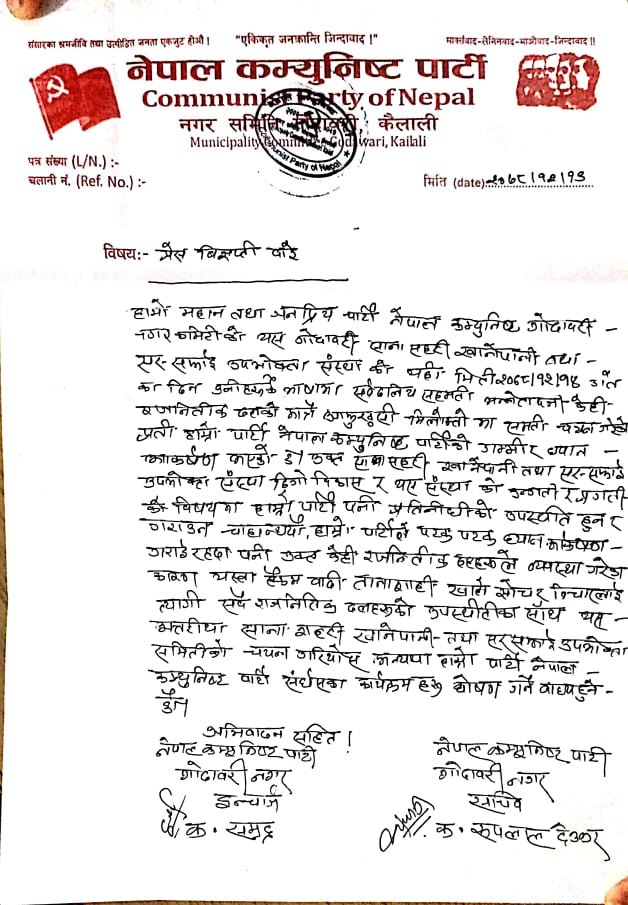 संसारका श्रमजीवि तथा उत्पीडित जनता एकजुट होऔं !
"एकिकृत जनक्रान्ति जिन्दावाद !"
मार्क्सवाद-लेनिनवाद-माओवाद-जिन्दावाद !!
नेपाल कम्युनिष्ट पार्टी
Communist Party of Nepal
नगर समिति गोदावरी, कैलाली
Municipality Committee, Godawari, Kailali
Communist Party of Nepal
पत्र संख्या (L/N.) :-
चलानी नं. (Ref. No.) :-
मिति (date) २०७८/१२/१३
विषय:- प्रेस विज्ञप्ती बारे
हाम्रो महान तथा जनप्रिय पार्टी नेपाल कम्युनिष्ट गोदावरी -
नगर कमिटीको यस गोदावरी साना सहरी खानेपानी तथा -
सर-सफाई उपभोक्ता संस्था को यही मिती २०७८/१२/१४ गते
का दिन उनीहरुकै भाषामा सर्वदलिय सहमती केही
राजनितीक दलको मात्रै मिलोमतो मा
प्रती हाम्रो पार्टी नेपाल कम्युनिष्ट पार्टीको गम्भीर ध्यान -
आकर्षण भएको छ। उक्त साना सहरी खानेपानी तथा सर-सफाई
उपभोक्ता संस्था दिगो विकास र यस संस्था को उन्नती र प्रगती
को विषयमा हाम्रो पार्टी पनी प्रतिनीधीको उपस्थीति हुन र
गराउन चाहान्थ्यौं, हाम्रो पार्टीले पटक पटक ध्यान आकर्षण
गराई रहदा पनी उक्त केही राजनितीक दलहरुले गरेका
कारण यस्ता हैकम वादी तानाशाही सोचर विचारलाई
त्यागी सबै राजनितिक दलहरुको उपस्थीतीका साथ यस
अत्तरीया साना शहरी खानेपानी तथा सरसफाई उपभोक्ता
समितीको चयन गरियोस अन्यथा हाम्रो पार्टी नेपाल -
कम्युनिष्ट पार्टी संघर्षका कार्यक्रम हरु घोषणा गर्न वाध्य हुने -
छौं।
अभिवादन सहित !
नेपाल कम्युनिष्ट पार्टी
गोदावरी नगर
इन्चार्ज
क. समुद्र
नेपाल कम्युनिष्ट पार्टी
गोदावरी नगर
सचिव
क. रुपलाल